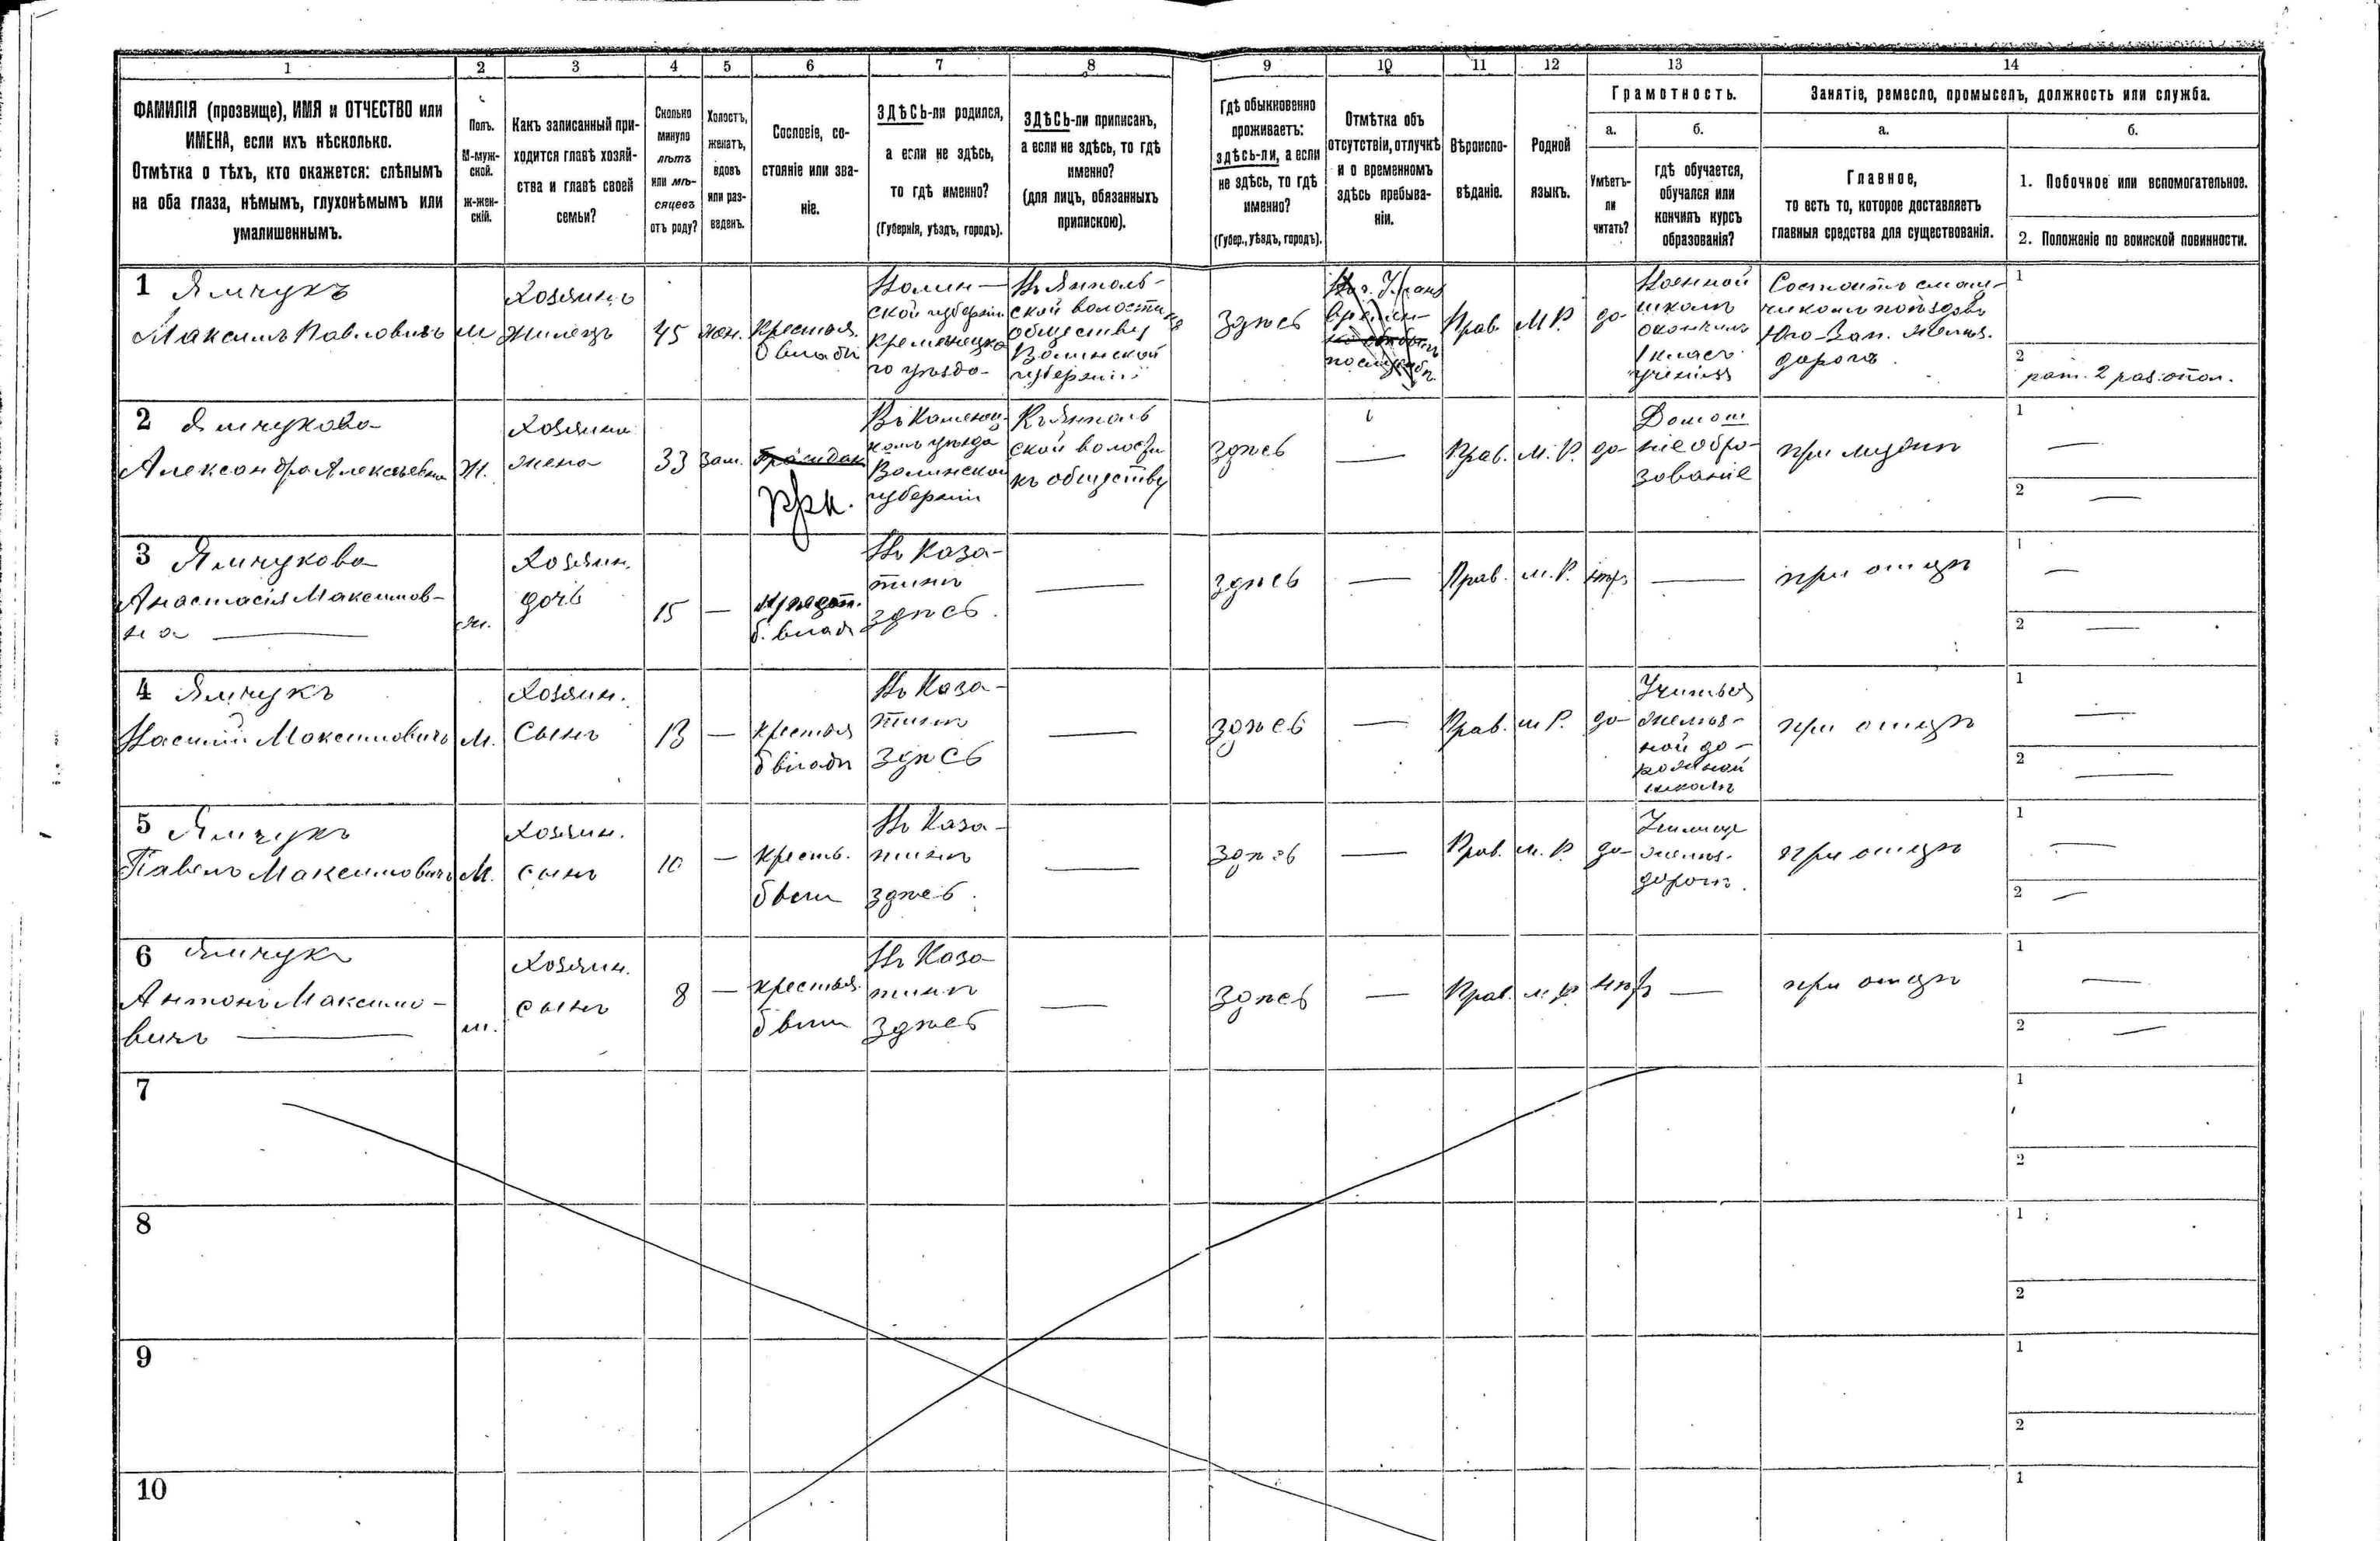 1 2 3 4 5 6 7 8 9 10 11 12 13 14
ФАМИЛІЯ (прозвище), ИМЯ и ОТЧЕСТВО или
ИМЕНА, если ихъ нѣсколько.
Отмѣтка о тѣхъ, кто окажется: слѣпымъ
на оба глаза, нѣмымъ, глухонѣмымъ или
умалишеннымъ.
Полъ.
М-муж-
ской.
Ж-жен-
скій.
Какъ записанный при-
ходится главѣ хозяй-
ства и главѣ своей
семьи?
Сколько
минуло
лѣтъ
или мѣ-
сяцевъ
отъ роду?
Холостъ,
женатъ,
вдовъ
или раз-
веденъ.
Сословіе, со-
стояніе или зва-
ніе.
ЗДѢСЬ-ли родился,
а если не здѣсь,
то гдѣ именно?
(Губернія, уѣздъ, городъ).
ЗДѢСЬ-ли приписанъ,
а если не здѣсь, то гдѣ
именно?
(для лицъ, обязанныхъ
припискою).
Гдѣ обыкновенно
проживаетъ:
здѣсь-ли, а если
не здѣсь, то гдѣ
именно?
(Губер., уѣздъ, городъ).
Отмѣтка объ
отсутствіи, отлучкѣ
и о временномъ
здѣсь пребыва-
ніи.
Вѣроиспо-
вѣданіе.
Родной
языкъ.
Грамотность.
а.
Умѣетъ-
ли
читать?
б.
гдѣ обучается,
обучался или
кончилъ курсъ
образованія?
Занятіе, ремесло, промыселъ, должность или служба.
а.
Главное,
то есть то, которое доставляетъ
главныя средства для существованія.
б.
1. Побочное или вспомогательное.
2. Положеніе по воинской повинности.
1 Ямчукъ
Максимъ Павловичъ
м
Хозяинъ
жилецъ
45
жен.
Крестья.
б влад
Волин-
ской губерніи
Кременецка
го уѣзда
Въ Ямполь-
ской волости
обществу
Волинской
губерніи
Здѣсь
Прав.
М Р.
да
Военной
школѣ
окончилъ
1 класъ
ученія
Состоитъ смаз-
чикомъ поѣздовъ
Юго-Зап. желѣз.
дорогъ.
1
2
рат. 2 раз. опол.
2 Ямчукова
Александра Алексѣевна
Ж.
Хозяина
жена
33
зам.
крк.
Волинской
губерніи
Къ Ямполь
ской волости
къ обществу
здѣсь
—
Прав.
М. Р.
да
Домаш
ніе обра-
зованіе
при мужѣ
1 —
2 —
3 Ямчукова
Анастасія Максимов-
на —
ж.
Хозяин.
дочь
15
—
б. влад
Въ Каза-
тинѣ
здѣсь.
—
здѣсь
—
Прав.
М. Р.
—
при отцѣ
1 —
2 —
4 Ямчукъ
Василій Максимовичъ
М.
Хозяин.
Сынъ
13
—
крестья
б влад
Въ Каза-
тинѣ
здѣсь
—
здѣсь
—
Прав.
м Р.
да
желѣз-
ной до-
рожной
школѣ
при отцѣ
1 —
2 —
5 Ямчукъ
Павелъ Максимовичъ
М.
Хозяин.
сынъ
10
—
Кресть.
Въ Каза-
тинѣ
здѣсь.
—
здѣсь
—
Прав.
М. Р.
да
желѣз.
дорогѣ.
при отцѣ
1 —
2 —
6 Ямчукъ
Антонъ Максимо-
вичъ —
м.
Хозяин.
сынъ
8
—
крестья.
Въ Каза
тинѣ
здѣсь
—
Здѣсь
—
Прав.
М. Р.
—
при отцѣ
1 —
2 —
7
1
2
8
1
2
9
1
2
10
1